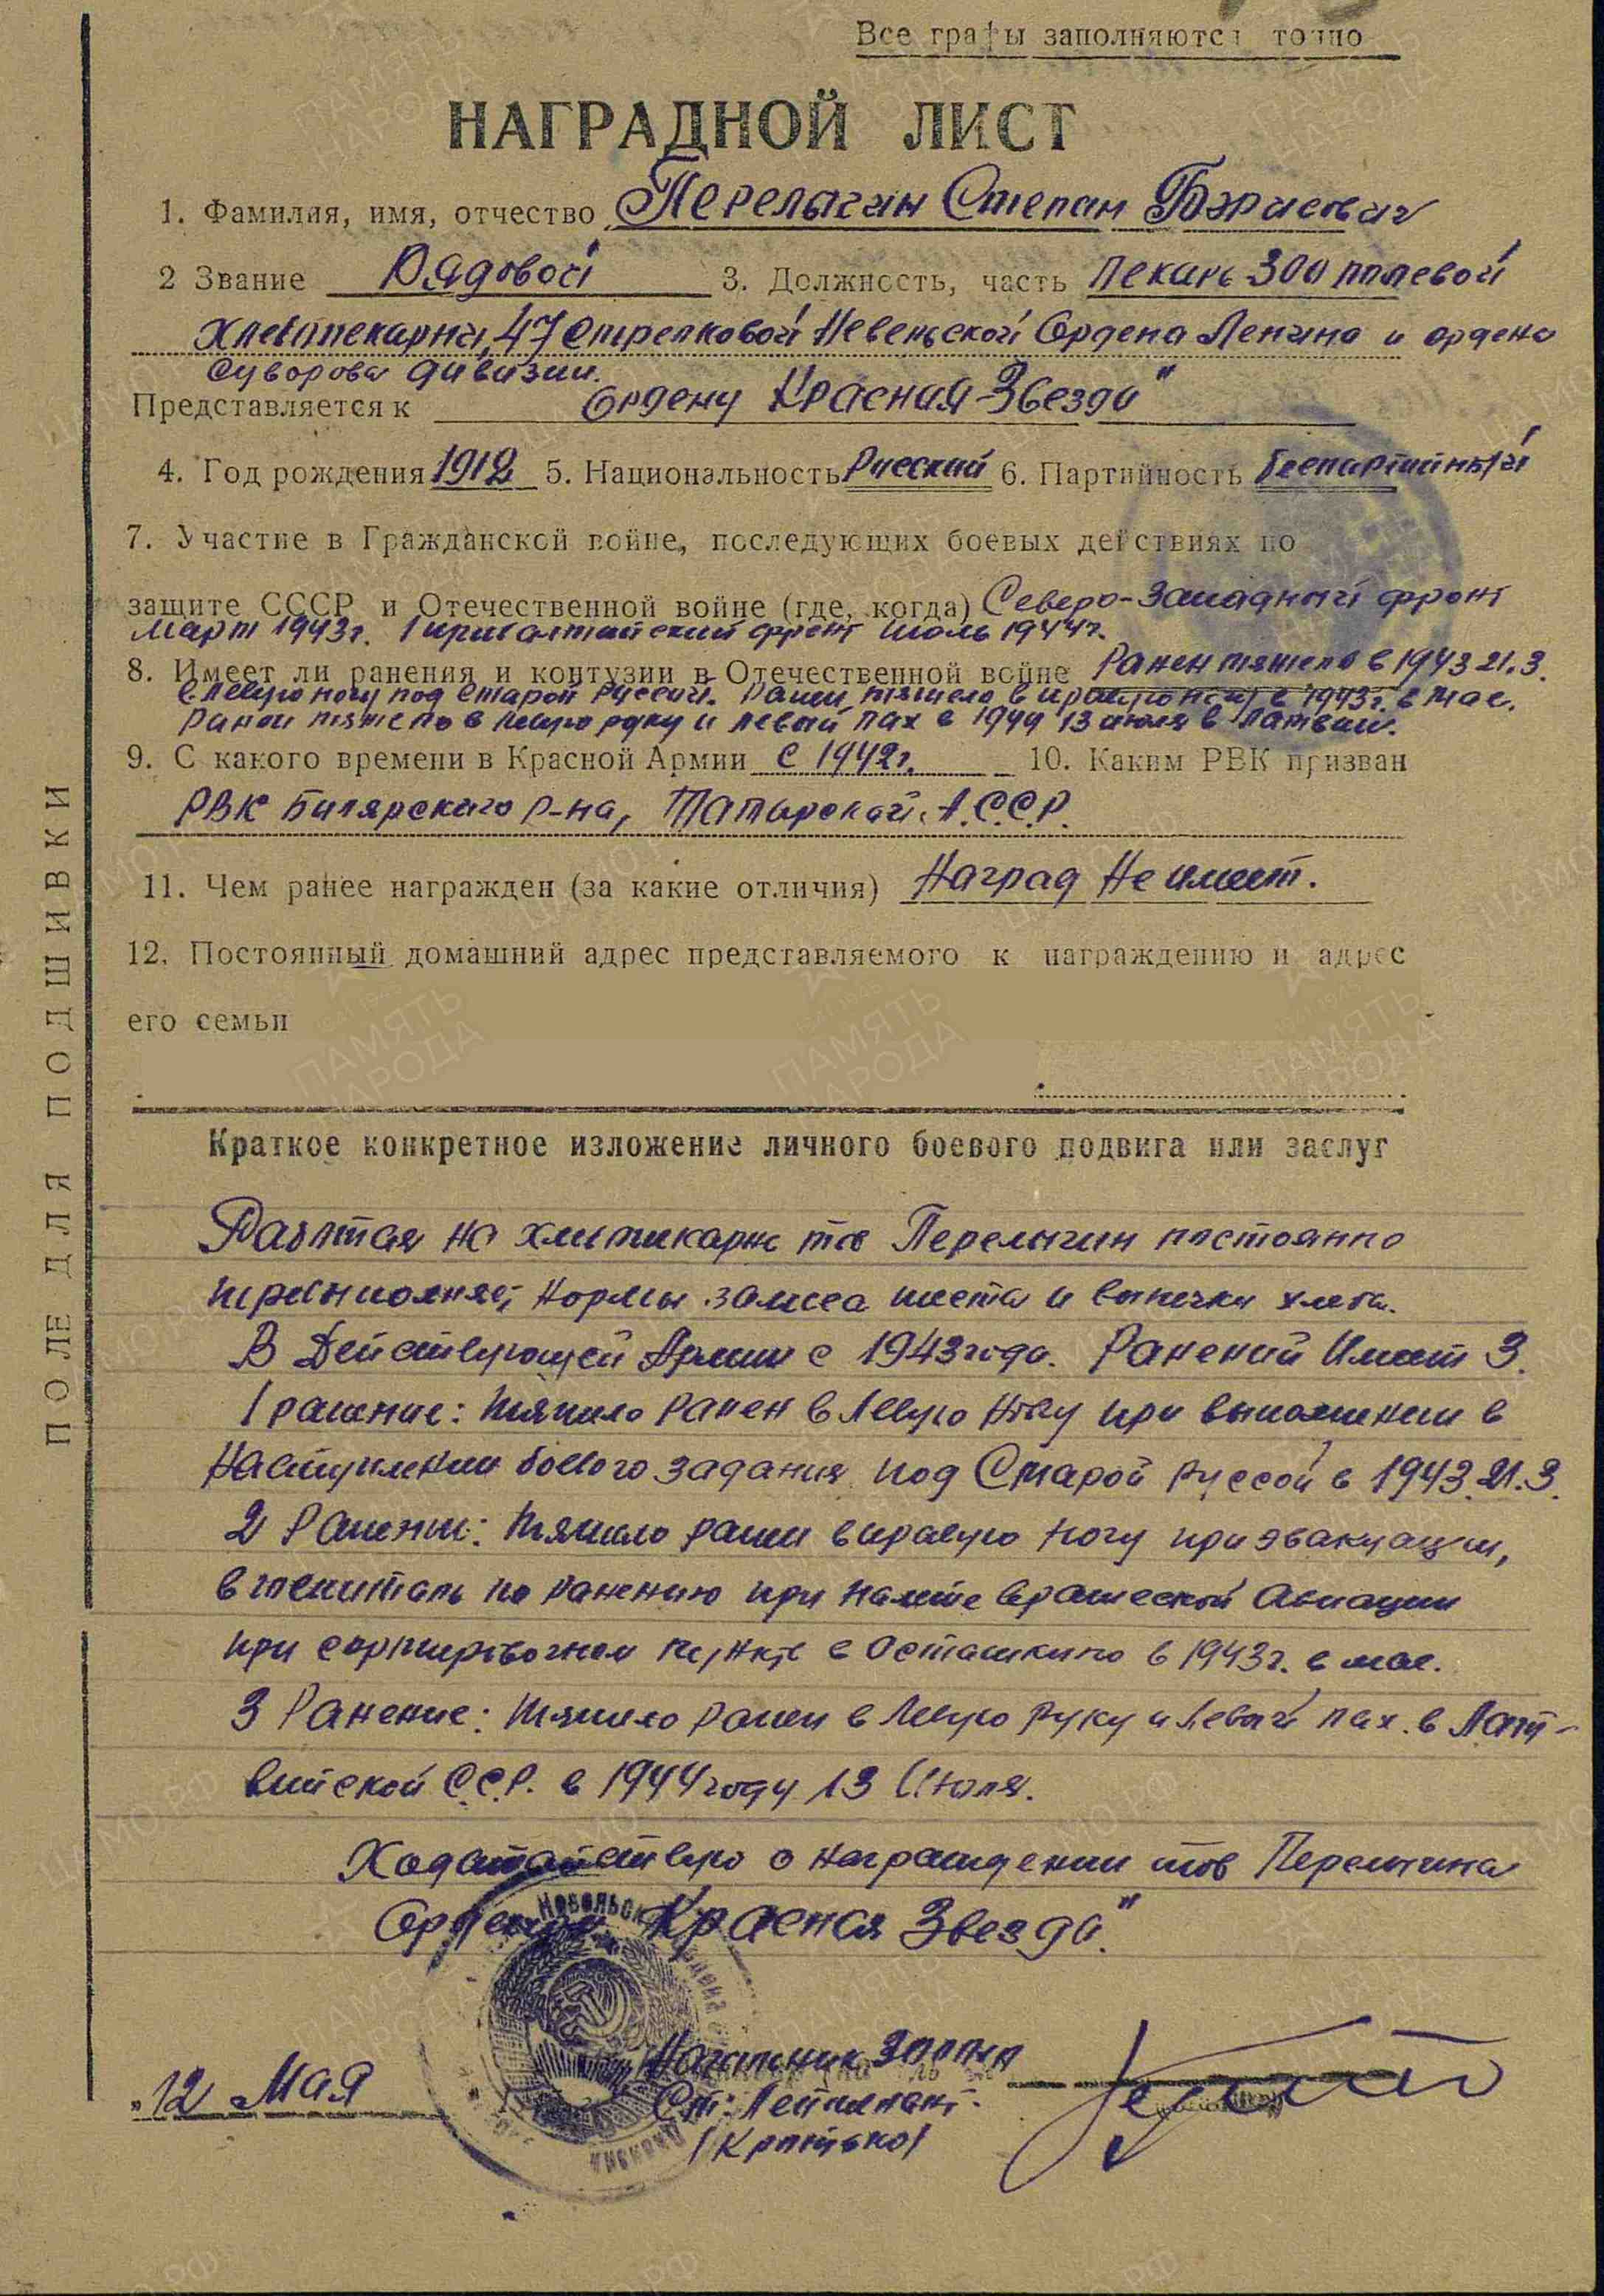 Все графы заполняются точно
НАГРАДНОЙ ЛИСТ
1. Фамилия, имя, отчество Перелыгин Степан Борисович
2 Звание Рядовой 3. Должность, часть Пекарь 300 полевой
хлебопекарни, 47 Стрелковой Невельской Ордена Ленина и ордена
Суворова дивизии.
Представляется к Ордену Красная Звезда"
4. Год рождения 1912 5. Национальность Русский 6. Партийность Беспартийный
7. Участие в Гражданской войне, последующих боевых действиях по
защите СССР и Отечественной войне (где, когда) Северо-Западный фронт
Март 1943г. 1 прибалтийский фронт июль 1944г.
8. Имеет ли ранения и контузии в Отечественной войне Ранен тяжело в 1943 21.3.
в левую ногу под Старой Руссой. Ранен тяжело в правую ногу в 1943г. в мае.
Ранен тяжело в левую руку и левый пах в 1944 13 июля в Латвии.
9. С какого времени в Красной Армии с 1942г. 10. Каким РВК призван
РВК Билярского р-на, Татарской А.С.С.Р.
11. Чем ранее награжден (за какие отличия) Наград Не имеет.
12. Постоянный домашний адрес представляемого к награждению и адрес
его семьи
Краткое конкретное изложение личного боевого подвига или заслуг
Работая на хлебопекарне тов Перелыгин постоянно
перевыполняет нормы замеса теста и выпечки хлеба.
В Действующей Армии с 1943 года. Ранений Имеет 3.
1 ранение: тяжело ранен в Левую Ногу при выполнении в
Наступлении боевого задания под Старой Руссой в 1943.21.3.
2 Ранение: тяжело ранен в правую ногу при эвакуации,
в госпиталь по ранению при налете вражеской Авиации
при сортировочном пункте в Осташкино в 1943г. в мае.
3 Ранение: тяжело ранен в Левую Руку и Левый пах. в Лат-
вийской С.С.Р. в 1944 году 13 Июля.
Ходатайствую о награждении тов Перелыгина
Орденом Красная Звезда".
Начальник
Ст. Лейтенант.
„12 Мая
ПОЛЕ ДЛЯ ПОДШИВКИ
ПАМЯТЬ НАРОДА